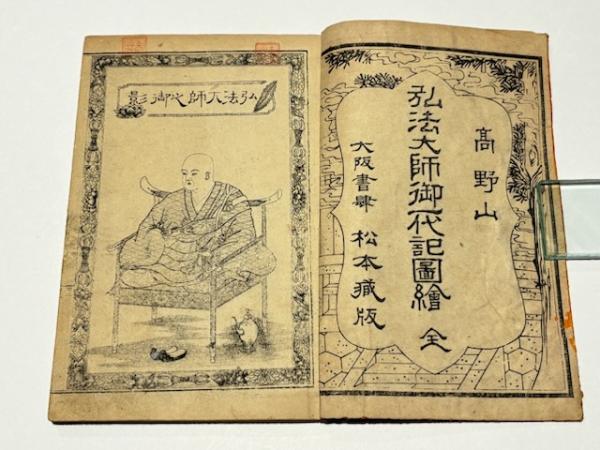 高野山
弘法大師御一代記圖繪 全
大阪書肆 松本藏版
弘法大師之御影